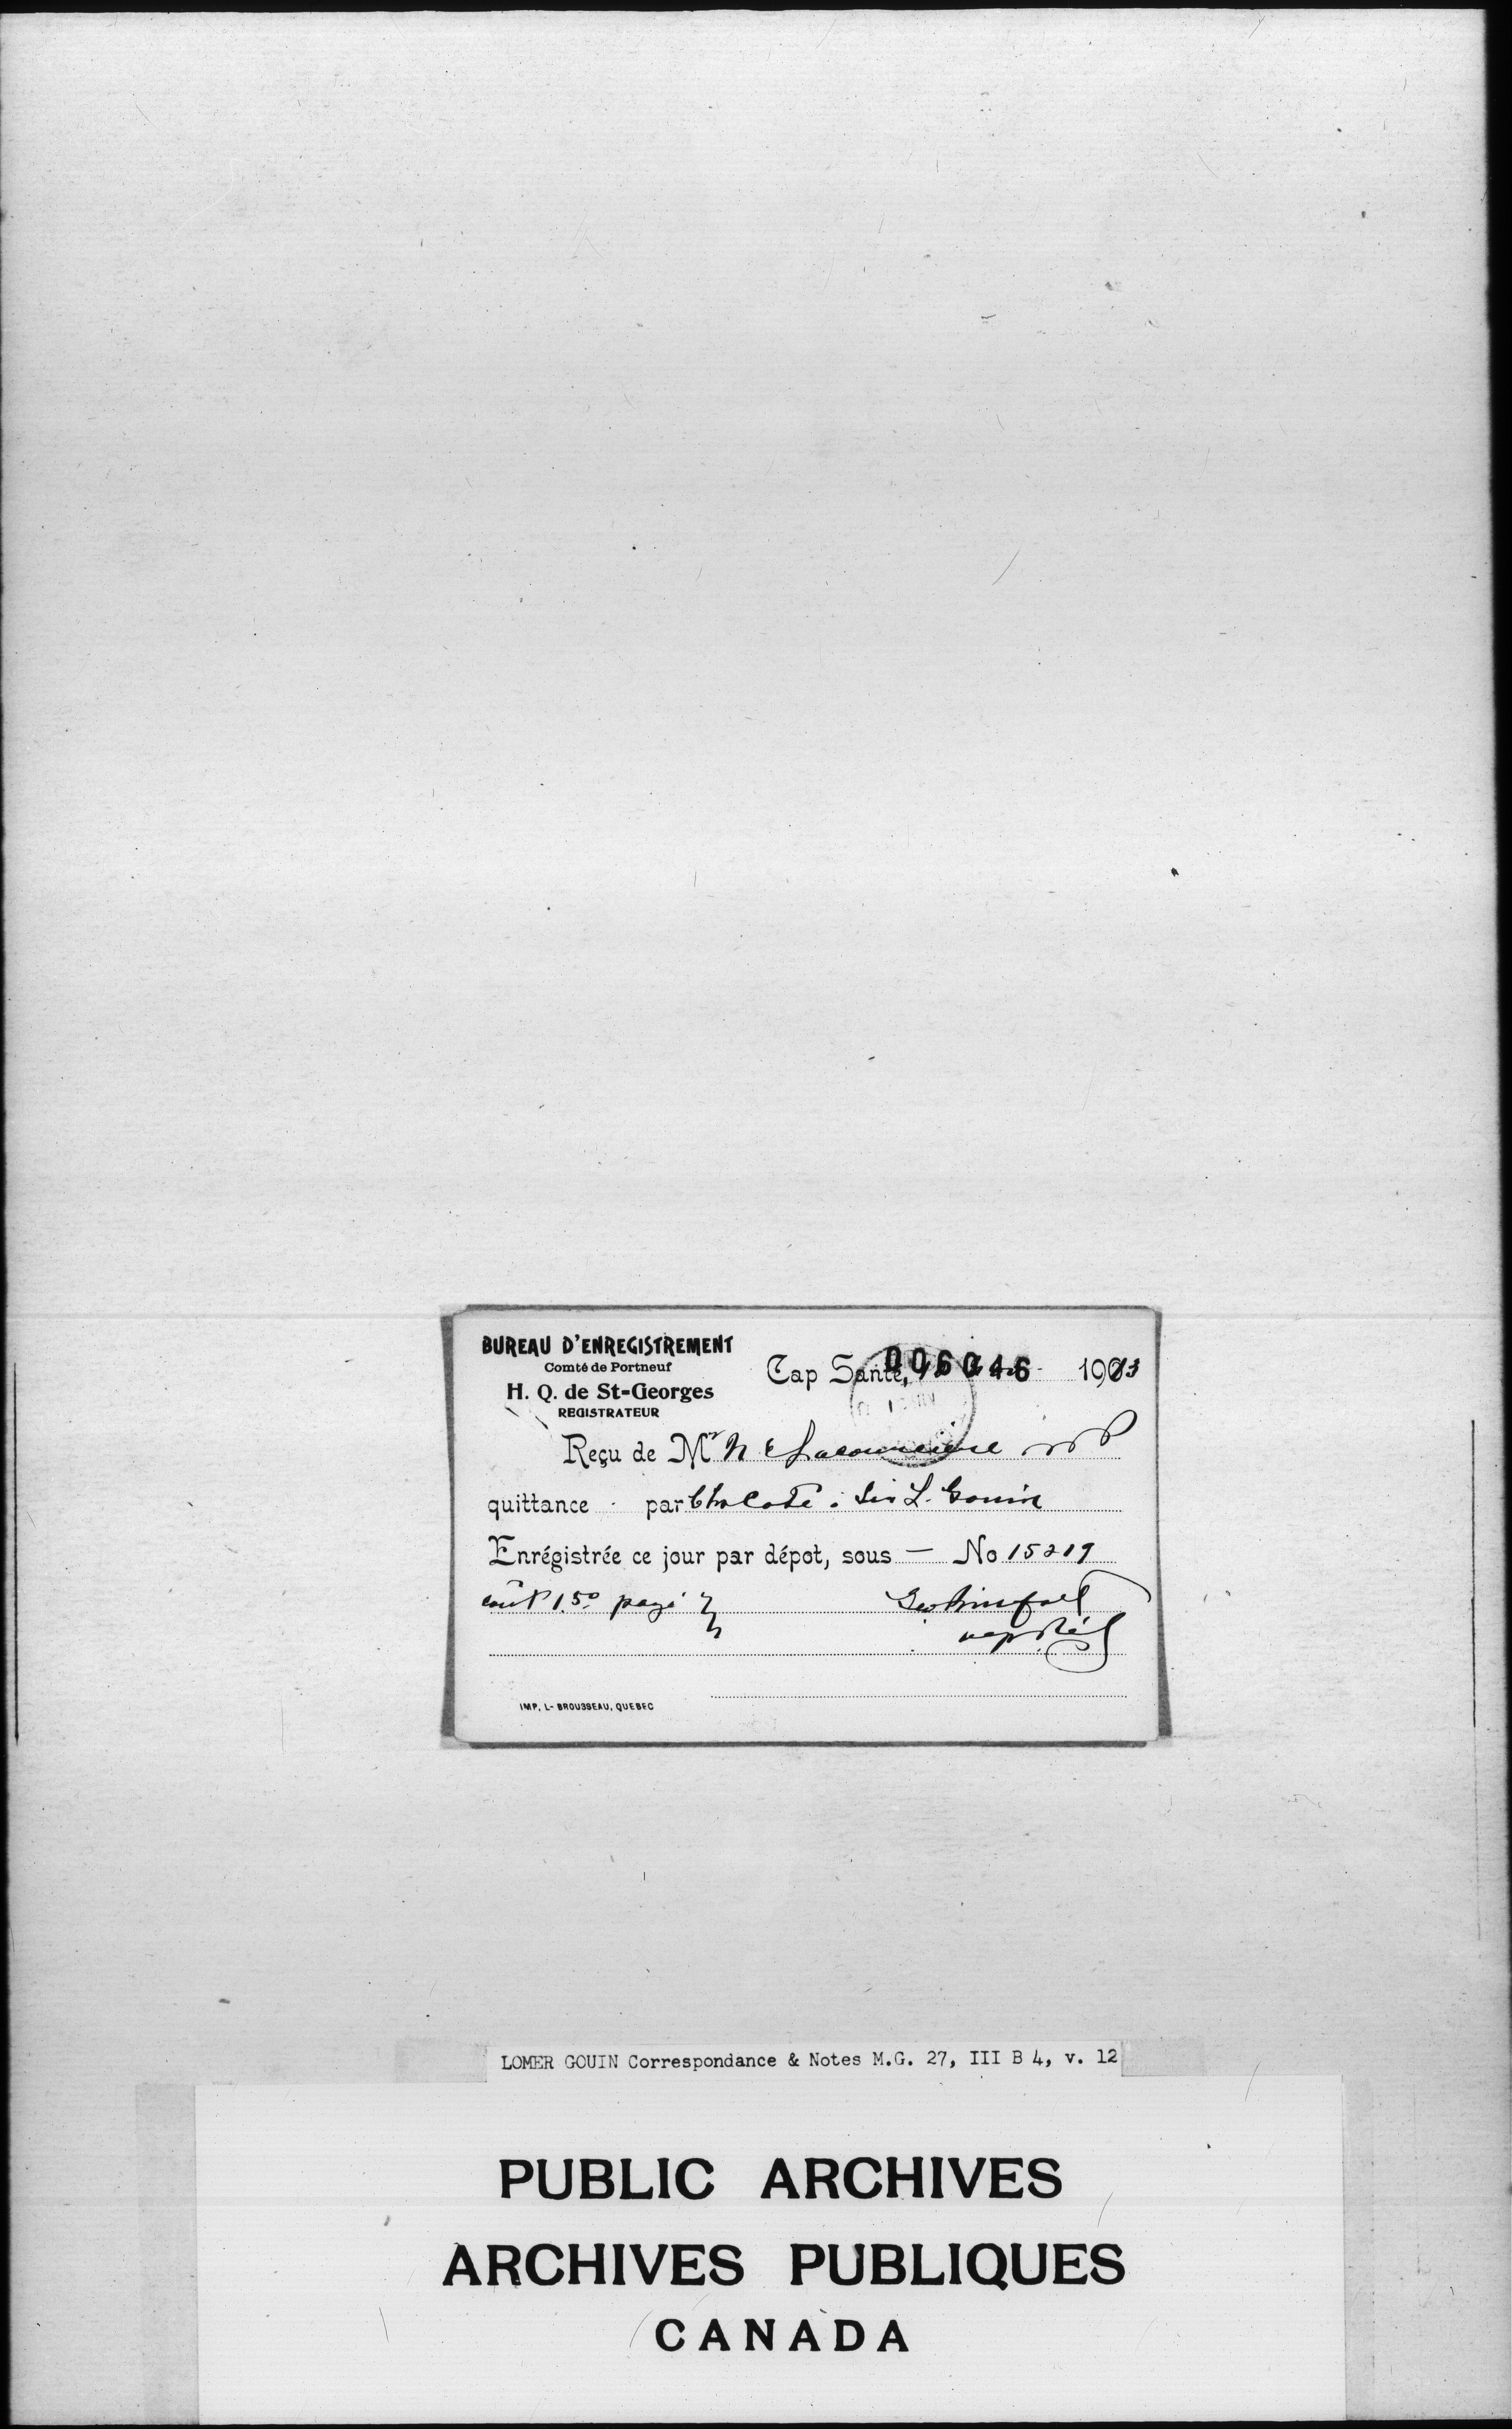 BUREAU D'ENREGISTREMENT
Comté de Portneuf
H. Q. de St-Georges
REGISTRATEUR
006046
Cap Santé, 19
Reçu de Mr N E Lacourciere
quittance par Chs Coté à Sir L. Gouin
Enrégistrée ce jour par dépot, sous — No 15219
coût 1.50 payé
IMP. L- BROUSSEAU, QUEBEC
LOMER GOUIN Correspondance & Notes M.G. 27, III B 4, v. 12
PUBLIC ARCHIVES
ARCHIVES PUBLIQUES
CANADA